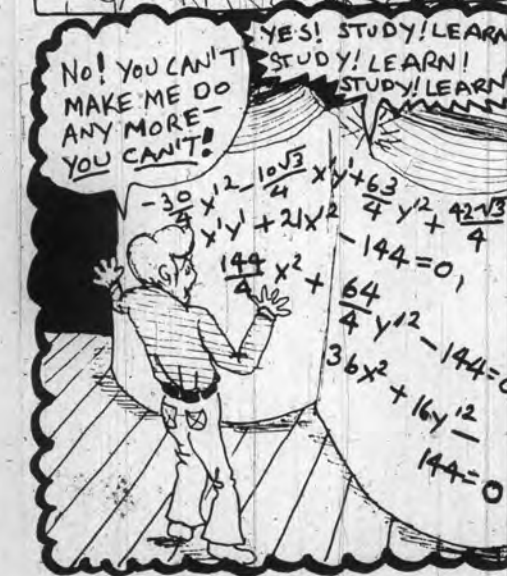 No! YOU CAN'T
MAKE ME DO
ANY MORE—
YOU CAN'T!
YES! STUDY! LEARN
STUDY! LEARN!
STUDY! LEARN
-30/4 x'² - 10√3/4 x'y' + 63/4 y'² + 42√3/4
x'y' + 21x'² - 144 = 0,
144/4 x² + 64/4 y'² - 144 = 0
36x² + 16y'² -
144 = 0